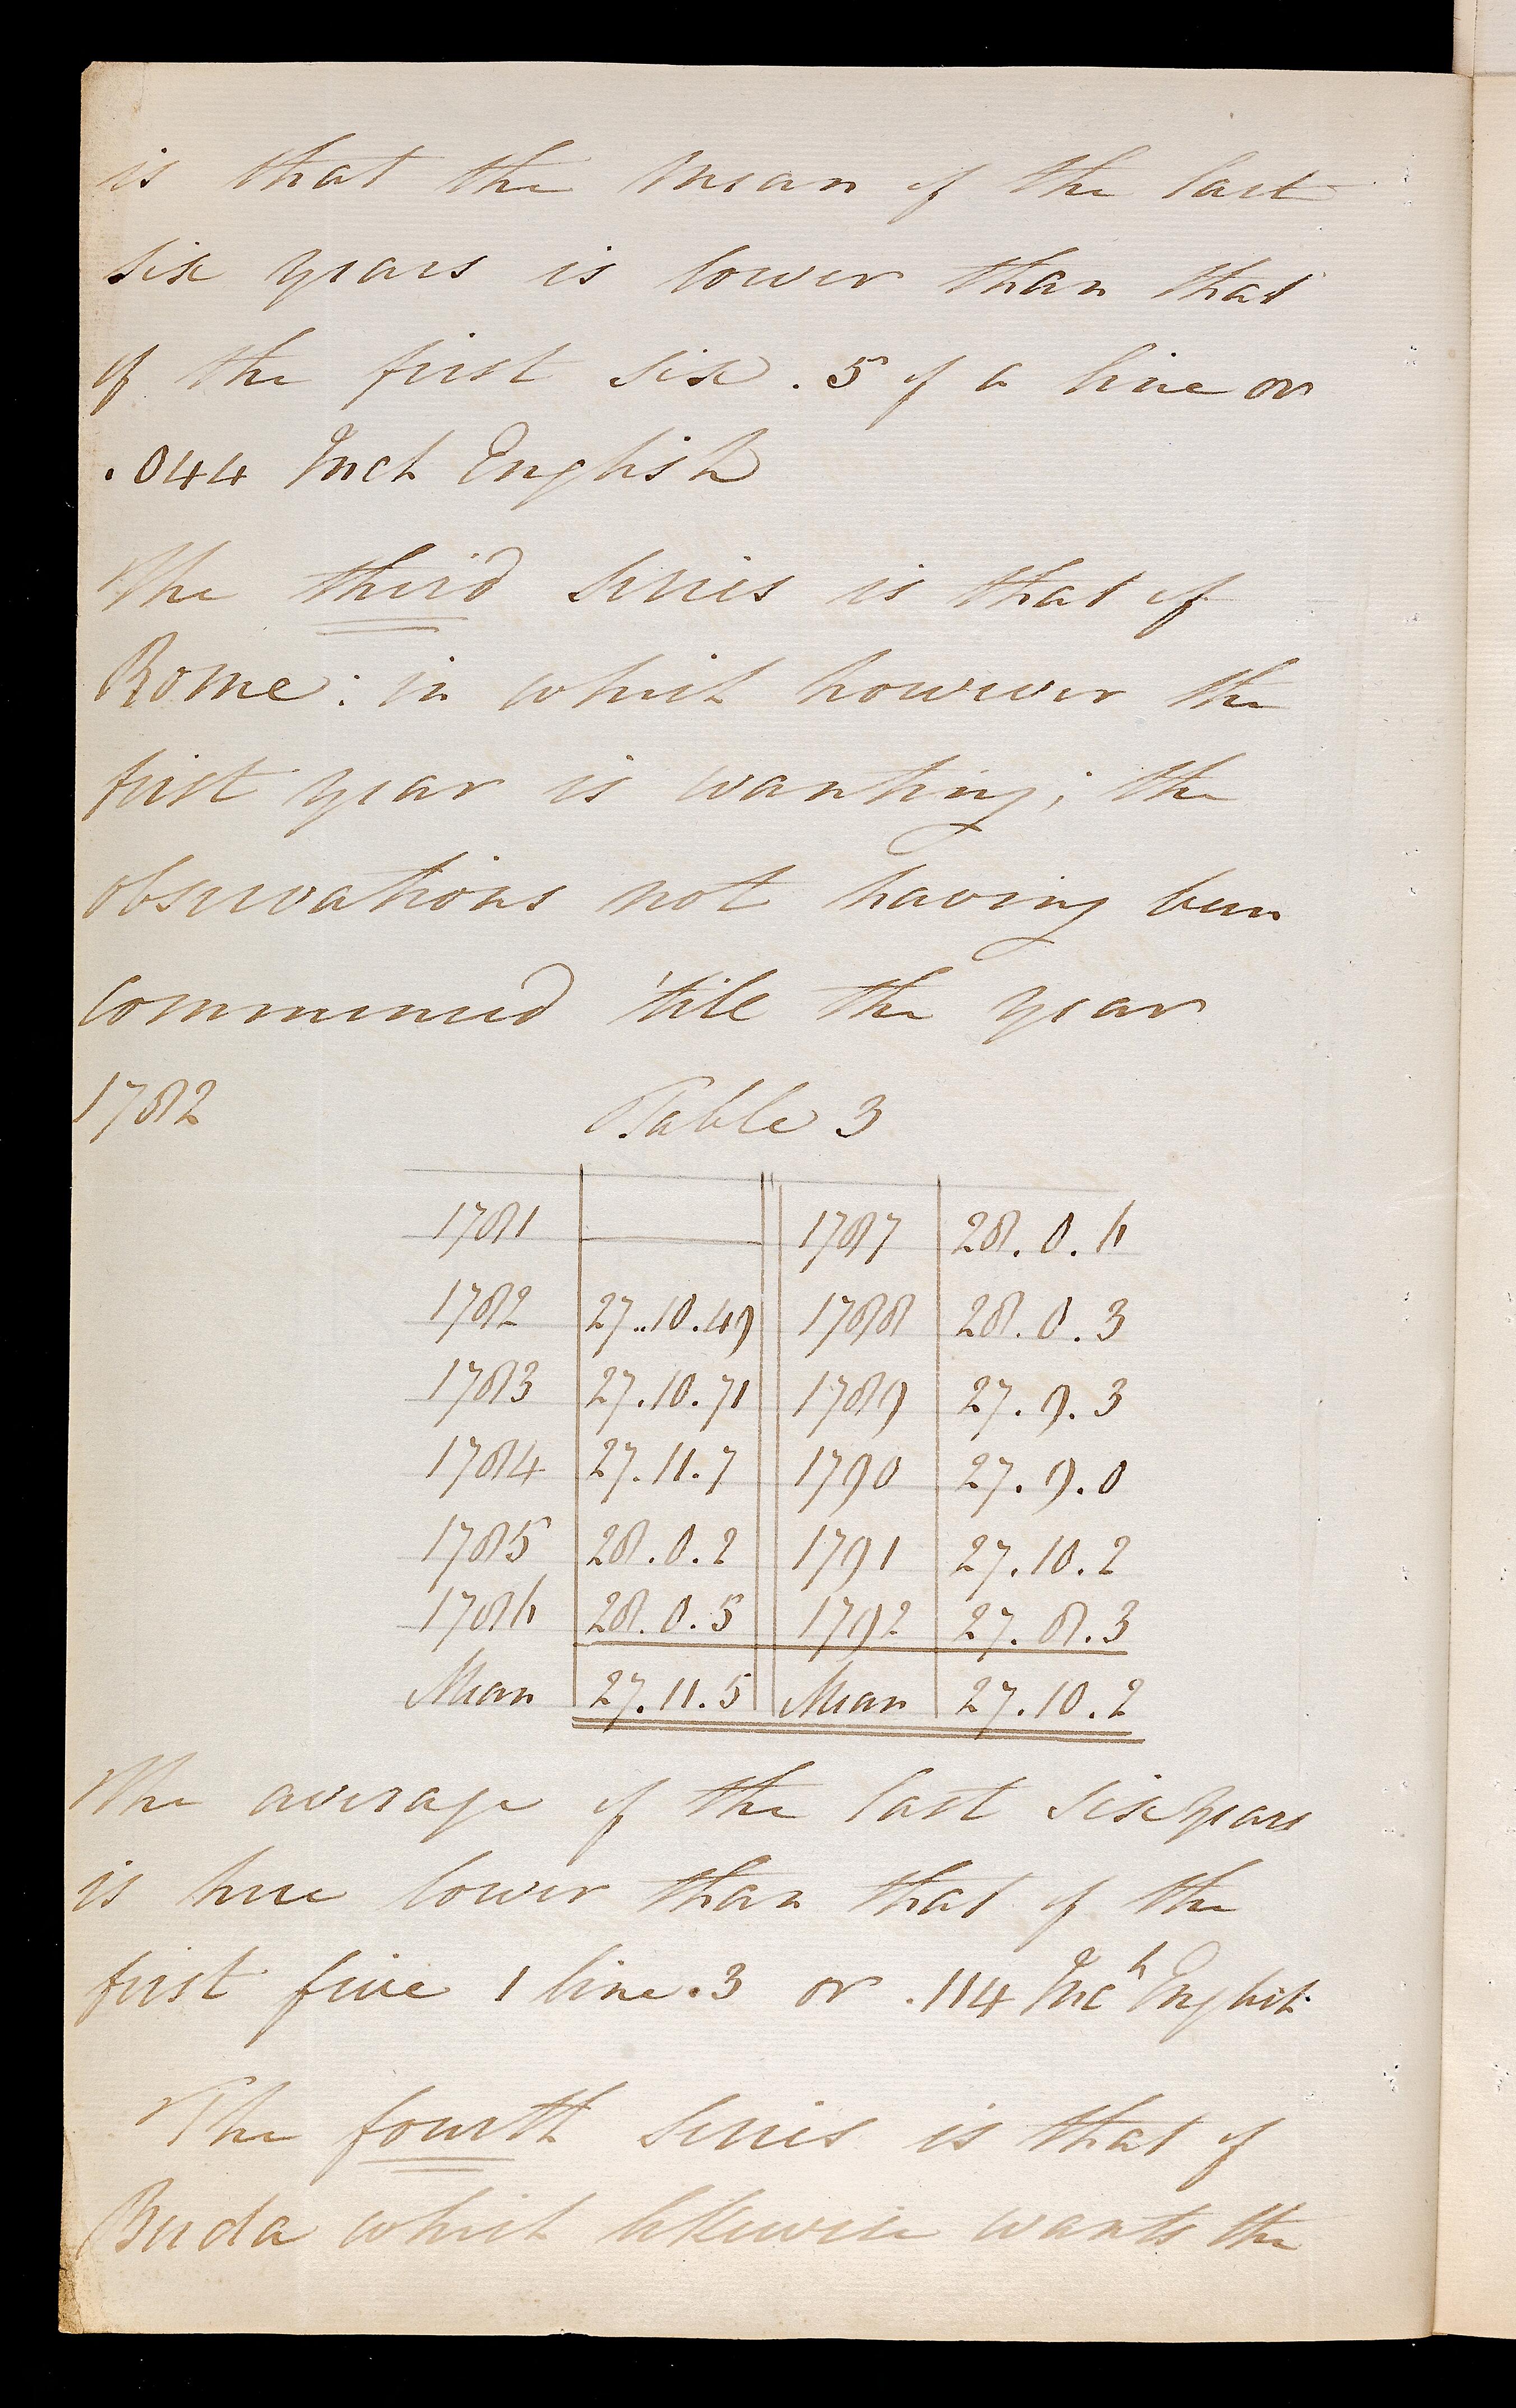 is that the mean of the last
six years is lower than that
of the first six .5 of a line or
.044 Inch English
The third series is that of
Rome: in which however the
first year is wanting; the
observations not having been
commenced 'till the year
1782 Table 3
1781 — 1787 28.0.6
1782 27.10.49 1788 28.0.3
1783 27.10.71 1789 27.9.3
1784 27.11.7 1790 27.9.0
1785 28.0.2 1791 27.10.2
1786 28.0.5 1792 27.8.3
Mean 27.11.5 Mean 27.10.2
The average of the last six years
is here lower than that of the
first five 1 line.3 or .114 Inch English
The fourth series is that of
Buda which likewise wants the